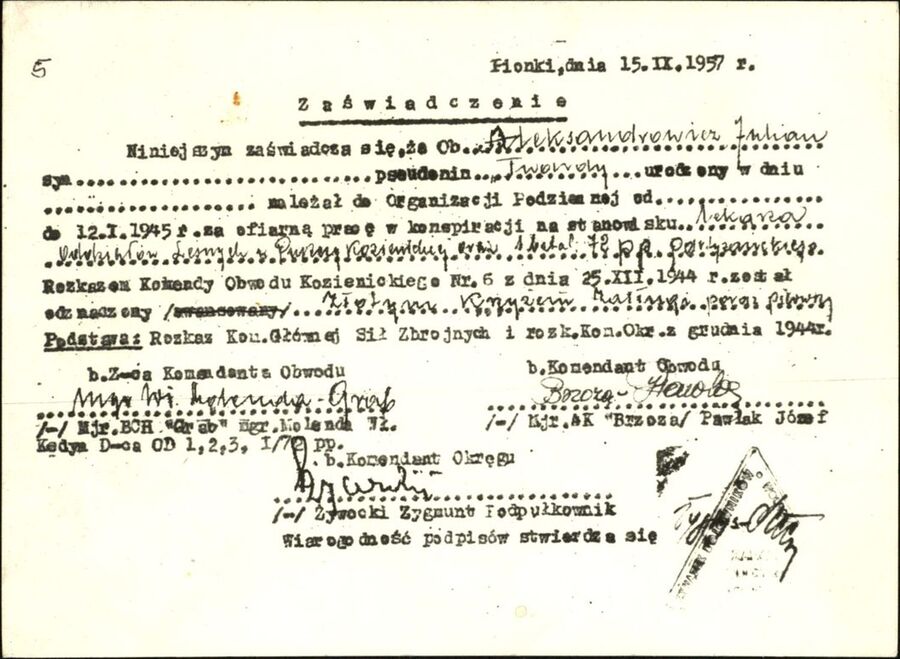 5
Pionki,dnia 15.IX.1957 r.
Zaświadczenie
Niniejszym zaświadcza się,że Ob...Aleksandrowicz Julian
syn..............................pseudonim..Twardy....urodzony w dniu
...................... należał do Organizacji Podziemnej od.........
do 12.I.1945 r.za ofiarną pracę w konspiracji na stanowisku.lekarza
Oddziałów Leśnych z Puszczy Kozienickiej oraz 1 batal. 72 pp. partyzanckiego
Rozkazem Komendy Obwodu Kozienickiego Nr.6 z dnia 25.XII.1944 r.został
odznaczony /awansowany/ Złotym Krzyżem Zasługi
Podstawa: Rozkaz Kom.Głównej Sił Zbrojnych i rozk.Kom.Okr.z grudnia 1944r.
b.Z-ca Komendanta Obwodu
b.Komendant Obwodu
Mgr Wł. Molenda-Grab
Brzoza-
/-/ Mjr.BCH "Grab" Mgr.Molenda Wł.
/-/ Mjr.AK "Brzoza/ Pawlak Józef
Kedyw D-ca OD 1,2,3, I/72 pp.
b.Komendant Okręgu
/-/ Żywocki Zygmunt Podpułkownik
Wiarogodność podpisów stwierdza się